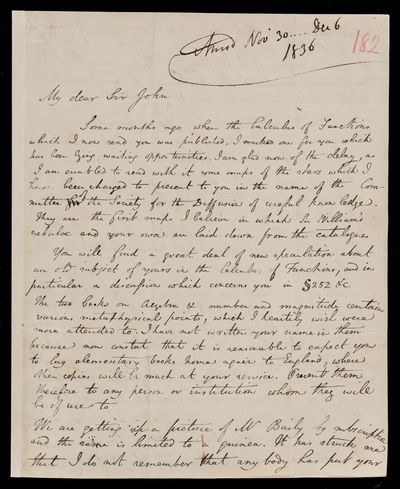 Nov 30.... Dec 6
1836
182
My dear Sir John
Some months ago when the Calculus of Functions
which I now send you was published, I marked one for you which
has been lying waiting opportunities. I am glad now of the delay, as
I am enabled to send with it some maps of the stars which I
have been charged to present to you in the name of the Com-
mittee of the Society for the Diffusion of useful knowledge.
They are the first maps I believe in which Sir William's
nebulae and your own are laid down from the catalogues
You will find a great deal of new speculation about
an old subject of yours in the Calculus of Functions, and in
particular a discussion which concerns you in § 252 &c
The two books on Algebra & number and magnitude contain
various metaphysical points, which I heartily wish were
more attended to. I have not written your name in them
because non constat that it is reasonable to expect you
to lug elementary books home again to England, where
other copies will be much at your service. Present them
therefore to any person or institution whom they will
be of use to
We are getting up a picture of Mr Baily by subscription
and the same is limited to a guinea. It has struck me
that I do not remember that any body has put your